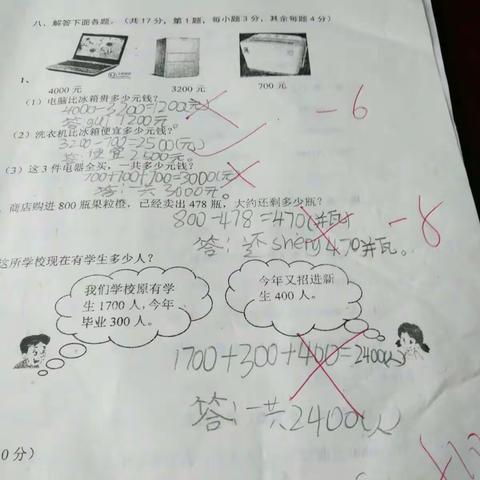 八、解答下面各题。（共17分，第1题，每小题3分，其余每题4分）
1.
4000元 3200元 700元
（1）电脑比冰箱贵多少元钱？
4000-3200=1200(元)
答：gui 1200元。
（2）洗衣机比冰箱便宜多少元钱？
3200-700=2500(元)
答：便宜2500元。
（3）这3件电器全买，一共多少元钱？
700+700+700=3000(元)
答：一共3000元。
-6
商店购进800瓶果粒橙，已经卖出478瓶，大约还剩多少瓶？
800-478=470(并瓦)
答：还sheng470并瓦。
-8
这所学校现在有学生多少人？
我们学校原有学
生1700人，今年
毕业300人。
今年又招进新
生400人。
1700+300+400=2400(人)
答：一共2400(人)
0分）